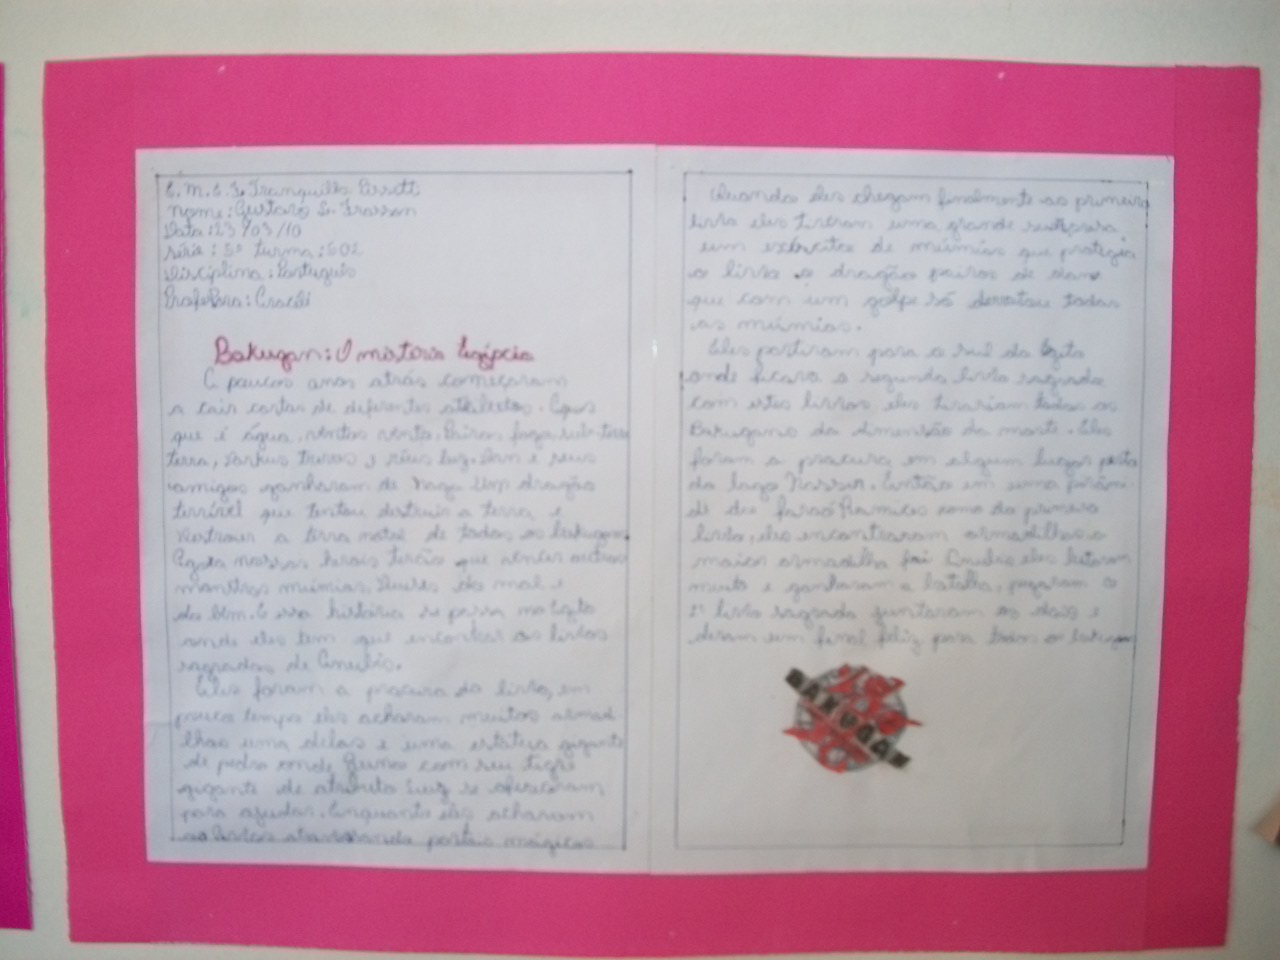 E. M. E. F. Tranquillo Pissetti
Nome: Gustavo L. Frasson
Data: 23/03/10
Série: 5ª turma: 502
Disciplina: Português
Professora: Graceli
Bakugan: O mistério Egípcio
poucos anos atrás começaram
a cair cartas de diferentes atributos.
que é água, ventos vento, fogo, sub-terra
terra, Darkus trevos e luz. Dan e seus
amigos ganharam de Naga Um dragão
terrível que tentou destruir a terra e
a terra natal de todos os bakugan.
nossos herois terão que vencer outros
monstros múmias, Deuses do mal e
do bem. E essa história se passa no Egito
onde eles tem que encontrar os livros
sagrados de Anubis.
Eles foram a procura do livro, em
pouco tempo eles acharam muitos armadi-
lhas uma delas e uma estátua gigante
de pedra onde Runo com seu tigre
gigante de atributo Luz se ofereceram
para ajudar. Enquanto eles acharam
portais mágicos
Quando eles chegam finalmente ao primeiro
livro eles tiveram uma grande surpresa
um exército de múmias que protegia
o livro o dragão de dan
que com um golpe só derrotou todas
as múmias.
Eles partiram para o sul do Egito
onde ficava o segundo livro sagrado
com estes livros eles tirariam todos os
Bakugans da dimensão da morte. Eles
foram a procura em algum lugar perto
do lago Nasser. Então em uma
de do faraó como do primeiro
livro, eles encontraram armadilhas a
maior armadilha foi Anubis eles lutaram
muito e ganharam a batalha, pegaram o
2º livro sagrado juntaram os dois e
deram um final feliz para todos os bakugan
BAKUGAN